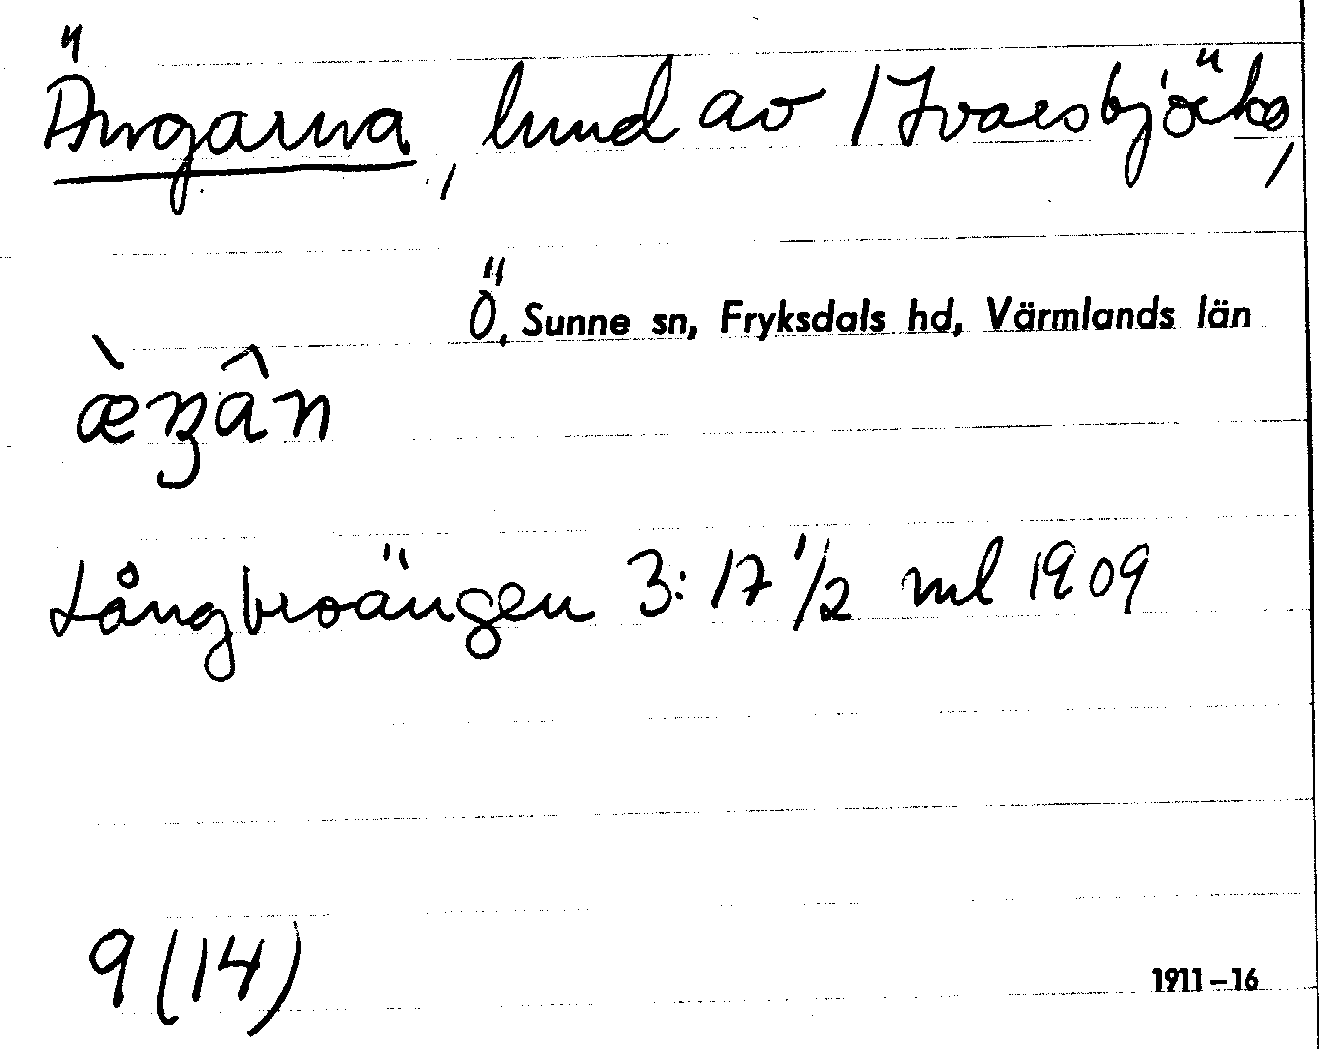 Ängarna, lund av 1 Ivarsbjörke,
Ö. Sunne sn, Fryksdals hd, Värmlands län
æ̀ŋân
Långbroängen 3:17 1/2 ml 1909
9 (14)
1911-16